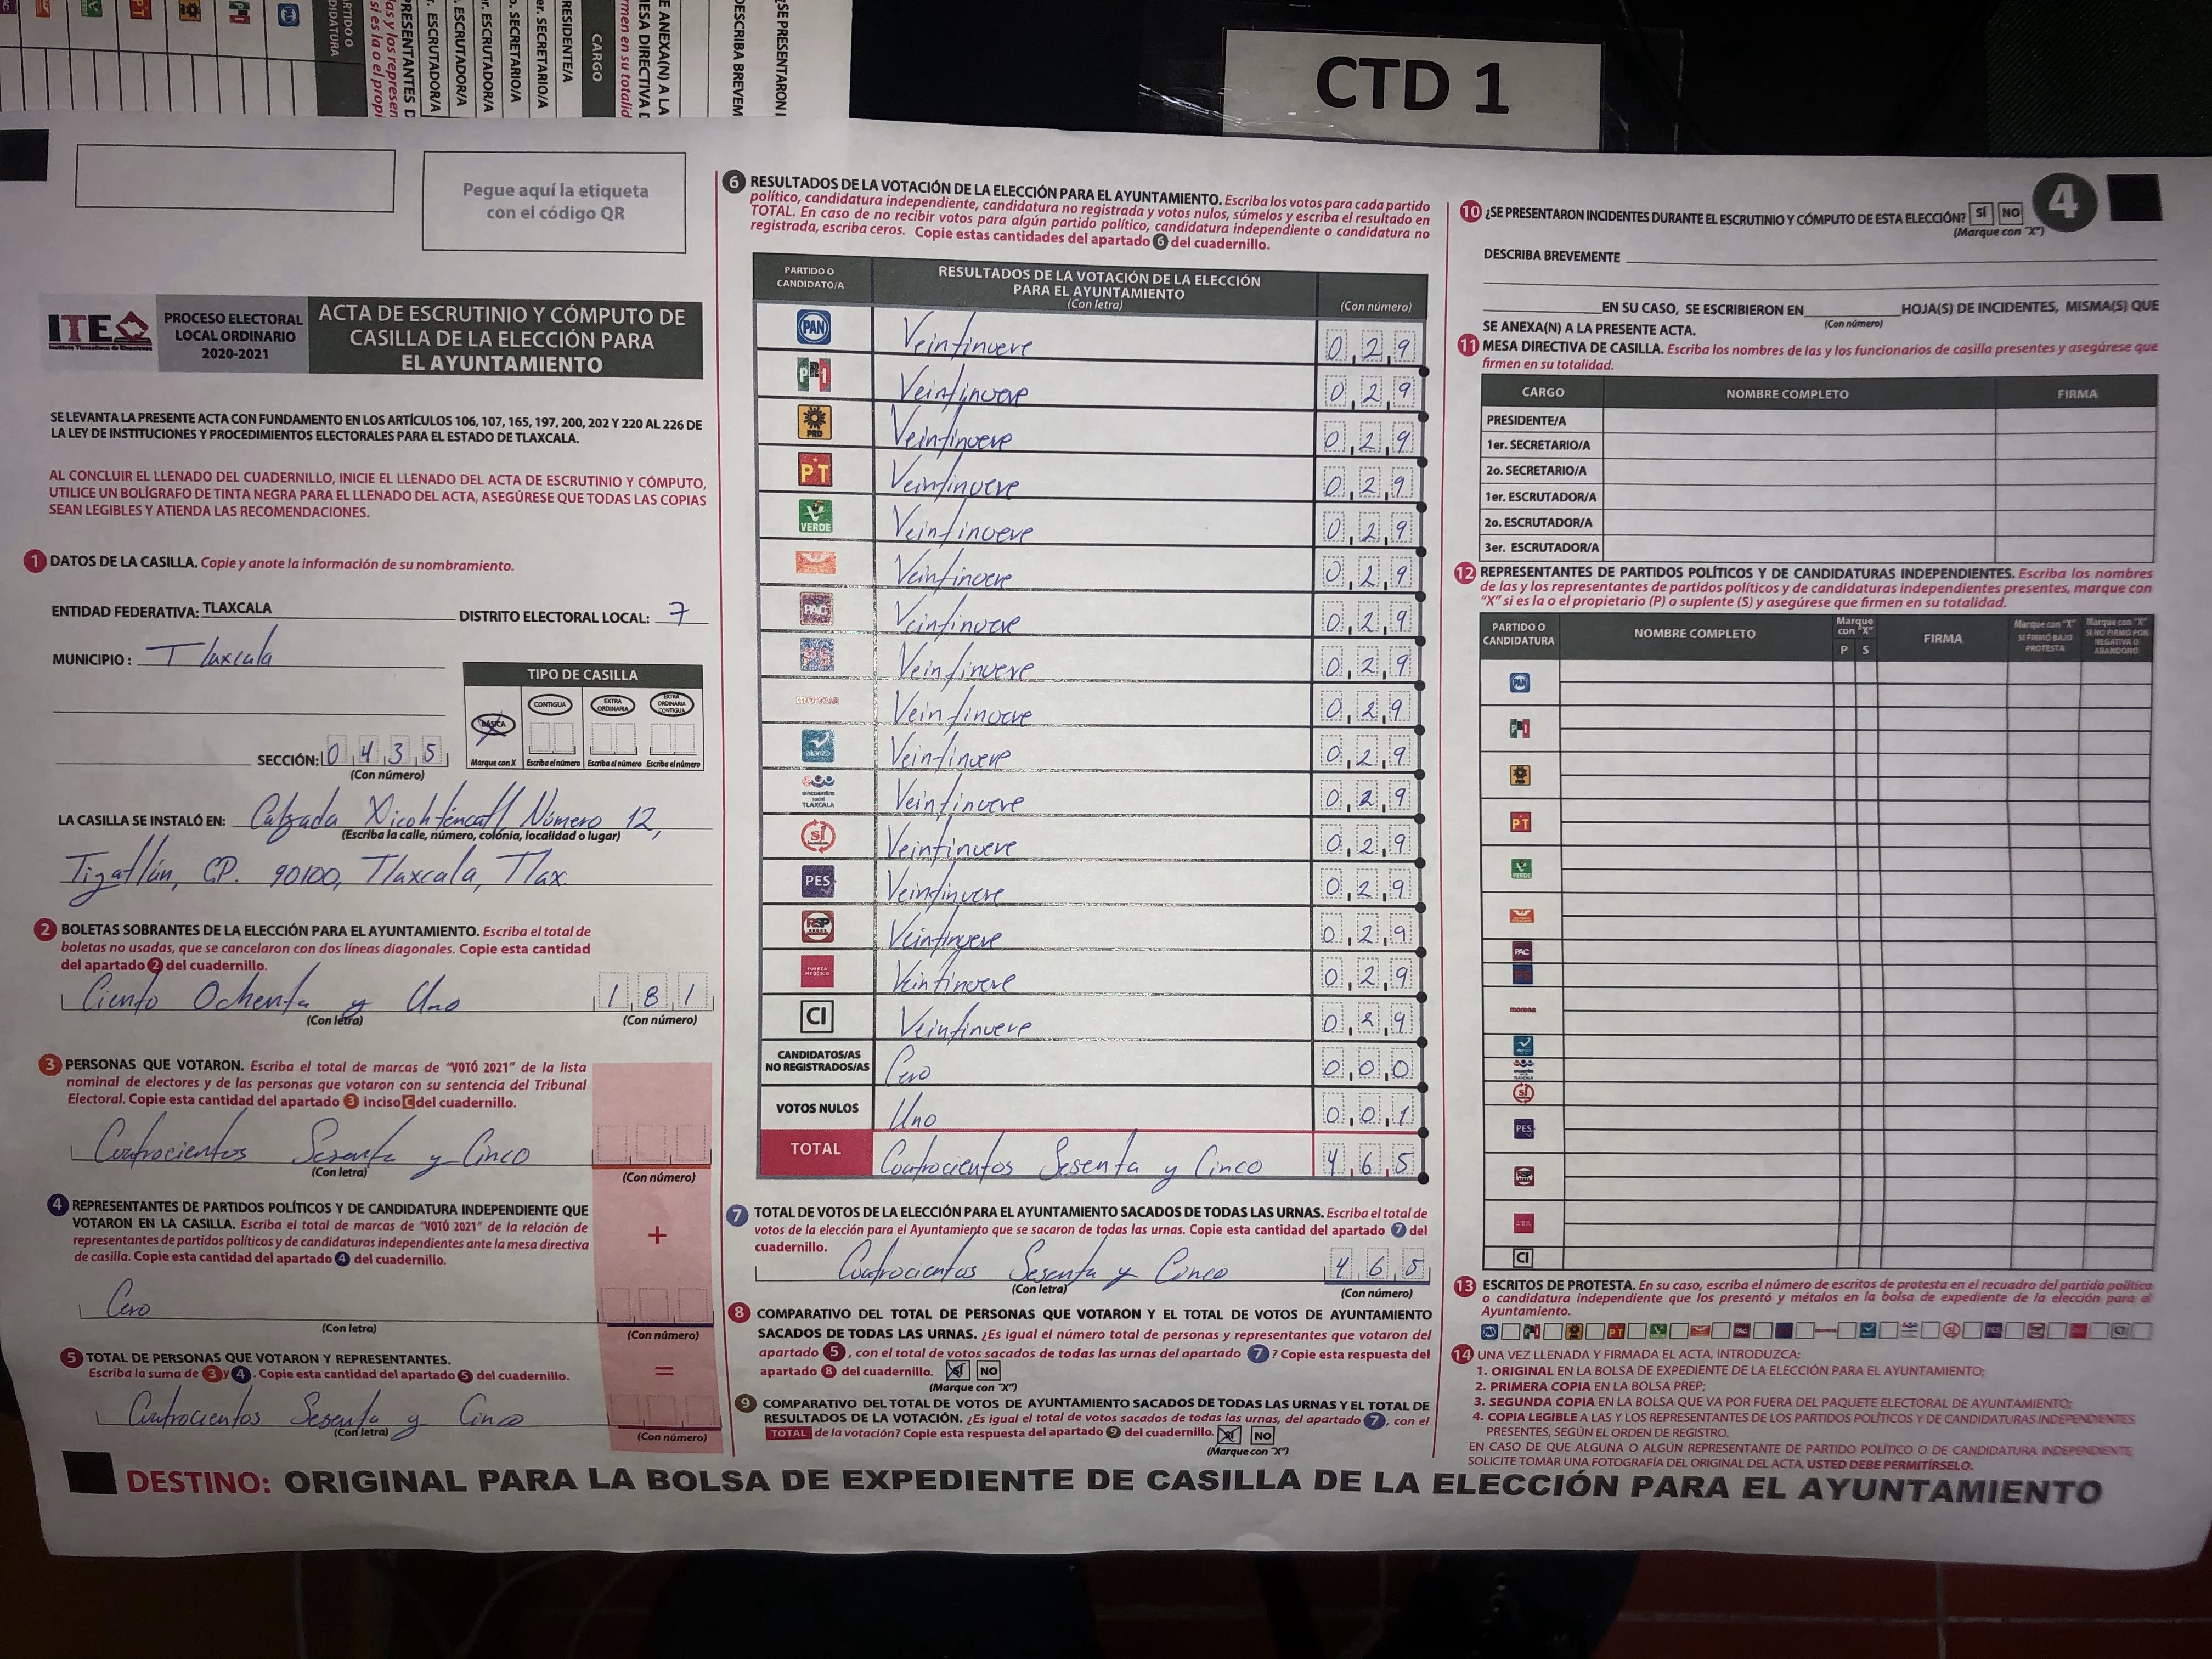 CTD 1
PARTIDO O
DIDATURA
RESENTANTES D
r. ESCRUTADOR/A
. ESCRUTADOR/A
r. ESCRUTADOR/A
o. SECRETARIO/A
er. SECRETARIO/A
RESIDENTE/A
CARGO
rmen en su totalid
ESA DIRECTIVA D
E ANEXA(N) A LA
DESCRIBA BREVEM
¿SE PRESENTARON I
Pegue aquí la etiqueta
con el código QR
ITE
Instituto Tlaxcalteca de Elecciones
PROCESO ELECTORAL
LOCAL ORDINARIO
2020-2021
ACTA DE ESCRUTINIO Y CÓMPUTO DE
CASILLA DE LA ELECCIÓN PARA
EL AYUNTAMIENTO
SE LEVANTA LA PRESENTE ACTA CON FUNDAMENTO EN LOS ARTÍCULOS 106, 107, 165, 197, 200, 202 Y 220 AL 226 DE
LA LEY DE INSTITUCIONES Y PROCEDIMIENTOS ELECTORALES PARA EL ESTADO DE TLAXCALA.
AL CONCLUIR EL LLENADO DEL CUADERNILLO, INICIE EL LLENADO DEL ACTA DE ESCRUTINIO Y CÓMPUTO,
UTILICE UN BOLÍGRAFO DE TINTA NEGRA PARA EL LLENADO DEL ACTA, ASEGÚRESE QUE TODAS LAS COPIAS
SEAN LEGIBLES Y ATIENDA LAS RECOMENDACIONES.
1 DATOS DE LA CASILLA. Copie y anote la información de su nombramiento.
ENTIDAD FEDERATIVA: TLAXCALA DISTRITO ELECTORAL LOCAL: 7
MUNICIPIO: Tlaxcala
TIPO DE CASILLA
BÁSICA CONTIGUA EXTRA ORDINARIA EXTRA ORDINARIA CONTIGUA
Marque con X Escriba el número Escriba el número Escriba el número
SECCIÓN: 0 4 3 5
(Con número)
LA CASILLA SE INSTALÓ EN: Calzada Xicohténcatl Número 12,
(Escriba la calle, número, colonia, localidad o lugar)
Tizatlán, C.P. 90100, Tlaxcala, Tlax.
2 BOLETAS SOBRANTES DE LA ELECCIÓN PARA EL AYUNTAMIENTO. Escriba el total de
boletas no usadas, que se cancelaron con dos líneas diagonales. Copie esta cantidad
del apartado 2 del cuadernillo.
Ciento Ochenta y Uno 1 8 1
(Con letra) (Con número)
3 PERSONAS QUE VOTARON. Escriba el total de marcas de "VOTÓ 2021" de la lista
nominal de electores y de las personas que votaron con su sentencia del Tribunal
Electoral. Copie esta cantidad del apartado 3 inciso C del cuadernillo.
Cuatrocientos Sesenta y Cinco
(Con letra) (Con número)
4 REPRESENTANTES DE PARTIDOS POLÍTICOS Y DE CANDIDATURA INDEPENDIENTE QUE
VOTARON EN LA CASILLA. Escriba el total de marcas de "VOTÓ 2021" de la relación de
representantes de partidos políticos y de candidaturas independientes ante la mesa directiva
de casilla. Copie esta cantidad del apartado 4 del cuadernillo.
+
Cero
(Con letra) (Con número)
5 TOTAL DE PERSONAS QUE VOTARON Y REPRESENTANTES.
Escriba la suma de 3 y 4. Copie esta cantidad del apartado 5 del cuadernillo.
=
Cuatrocientos Sesenta y Cinco
(Con letra) (Con número)
6 RESULTADOS DE LA VOTACIÓN DE LA ELECCIÓN PARA EL AYUNTAMIENTO. Escriba los votos para cada partido
político, candidatura independiente, candidatura no registrada y votos nulos, súmelos y escriba el resultado en
TOTAL. En caso de no recibir votos para algún partido político, candidatura independiente o candidatura no
registrada, escriba ceros. Copie estas cantidades del apartado 6 del cuadernillo.
PARTIDO O CANDIDATO/A RESULTADOS DE LA VOTACIÓN DE LA ELECCIÓN PARA EL AYUNTAMIENTO (Con letra) (Con número)
PAN Veintinueve 0 2 9
PRI Veintinueve 0 2 9
PRD Veintinueve 0 2 9
PT Veintinueve 0 2 9
VERDE Veintinueve 0 2 9
Veintinueve 0 2 9
PAC Veintinueve 0 2 9
Veintinueve 0 2 9
morena Veintinueve 0 2 9
alianza Veintinueve 0 2 9
encuentro social TLAXCALA Veintinueve 0 2 9
SÍ Veintinueve 0 2 9
PES Veintinueve 0 2 9
RSP Veintinueve 0 2 9
FUERZA MÉXICO Veintinueve 0 2 9
CI Veintinueve 0 2 9
CANDIDATOS/AS NO REGISTRADOS/AS Cero 0 0 0
VOTOS NULOS Uno 0 0 1
TOTAL Cuatrocientos Sesenta y Cinco 4 6 5
7 TOTAL DE VOTOS DE LA ELECCIÓN PARA EL AYUNTAMIENTO SACADOS DE TODAS LAS URNAS. Escriba el total de
votos de la elección para el Ayuntamiento que se sacaron de todas las urnas. Copie esta cantidad del apartado 7 del
cuadernillo.
Cuatrocientos Sesenta y Cinco 4 6 5
(Con letra) (Con número)
8 COMPARATIVO DEL TOTAL DE PERSONAS QUE VOTARON Y EL TOTAL DE VOTOS DE AYUNTAMIENTO
SACADOS DE TODAS LAS URNAS. ¿Es igual el número total de personas y representantes que votaron del
apartado 5, con el total de votos sacados de todas las urnas del apartado 7? Copie esta respuesta del
apartado 8 del cuadernillo. SÍ NO
(Marque con "X")
9 COMPARATIVO DEL TOTAL DE VOTOS DE AYUNTAMIENTO SACADOS DE TODAS LAS URNAS Y EL TOTAL DE
RESULTADOS DE LA VOTACIÓN. ¿Es igual el total de votos sacados de todas las urnas, del apartado 7, con el
TOTAL de la votación? Copie esta respuesta del apartado 9 del cuadernillo. SÍ NO
(Marque con "X")
4
10 ¿SE PRESENTARON INCIDENTES DURANTE EL ESCRUTINIO Y CÓMPUTO DE ESTA ELECCIÓN? SÍ NO
(Marque con "X")
DESCRIBA BREVEMENTE
EN SU CASO, SE ESCRIBIERON EN HOJA(S) DE INCIDENTES, MISMA(S) QUE
(Con número)
SE ANEXA(N) A LA PRESENTE ACTA.
11 MESA DIRECTIVA DE CASILLA. Escriba los nombres de las y los funcionarios de casilla presentes y asegúrese que
firmen en su totalidad.
CARGO NOMBRE COMPLETO FIRMA
PRESIDENTE/A
1er. SECRETARIO/A
2o. SECRETARIO/A
1er. ESCRUTADOR/A
2o. ESCRUTADOR/A
3er. ESCRUTADOR/A
12 REPRESENTANTES DE PARTIDOS POLÍTICOS Y DE CANDIDATURAS INDEPENDIENTES. Escriba los nombres
de las y los representantes de partidos políticos y de candidaturas independientes presentes, marque con
"X" si es la o el propietario (P) o suplente (S) y asegúrese que firmen en su totalidad.
PARTIDO O CANDIDATURA NOMBRE COMPLETO Marque con "X" P S FIRMA Marque con "X" SI FIRMÓ BAJO PROTESTA Marque con "X" SI NO FIRMÓ POR NEGATIVA O ABANDONO
PAN
PRI
PRD
PT
VERDE
PAC
morena
SÍ
PES
RSP
CI
13 ESCRITOS DE PROTESTA. En su caso, escriba el número de escritos de protesta en el recuadro del partido político
o candidatura independiente que los presentó y métalos en la bolsa de expediente de la elección para el
Ayuntamiento.
14 UNA VEZ LLENADA Y FIRMADA EL ACTA, INTRODUZCA:
1. ORIGINAL EN LA BOLSA DE EXPEDIENTE DE LA ELECCIÓN PARA EL AYUNTAMIENTO;
2. PRIMERA COPIA EN LA BOLSA PREP;
3. SEGUNDA COPIA EN LA BOLSA QUE VA POR FUERA DEL PAQUETE ELECTORAL DE AYUNTAMIENTO;
4. COPIA LEGIBLE A LAS Y LOS REPRESENTANTES DE LOS PARTIDOS POLÍTICOS Y DE CANDIDATURAS INDEPENDIENTES
PRESENTES, SEGÚN EL ORDEN DE REGISTRO.
EN CASO DE QUE ALGUNA O ALGÚN REPRESENTANTE DE PARTIDO POLÍTICO O DE CANDIDATURA INDEPENDIENTE
SOLICITE TOMAR UNA FOTOGRAFÍA DEL ORIGINAL DEL ACTA, USTED DEBE PERMITÍRSELO.
DESTINO: ORIGINAL PARA LA BOLSA DE EXPEDIENTE DE CASILLA DE LA ELECCIÓN PARA EL AYUNTAMIENTO